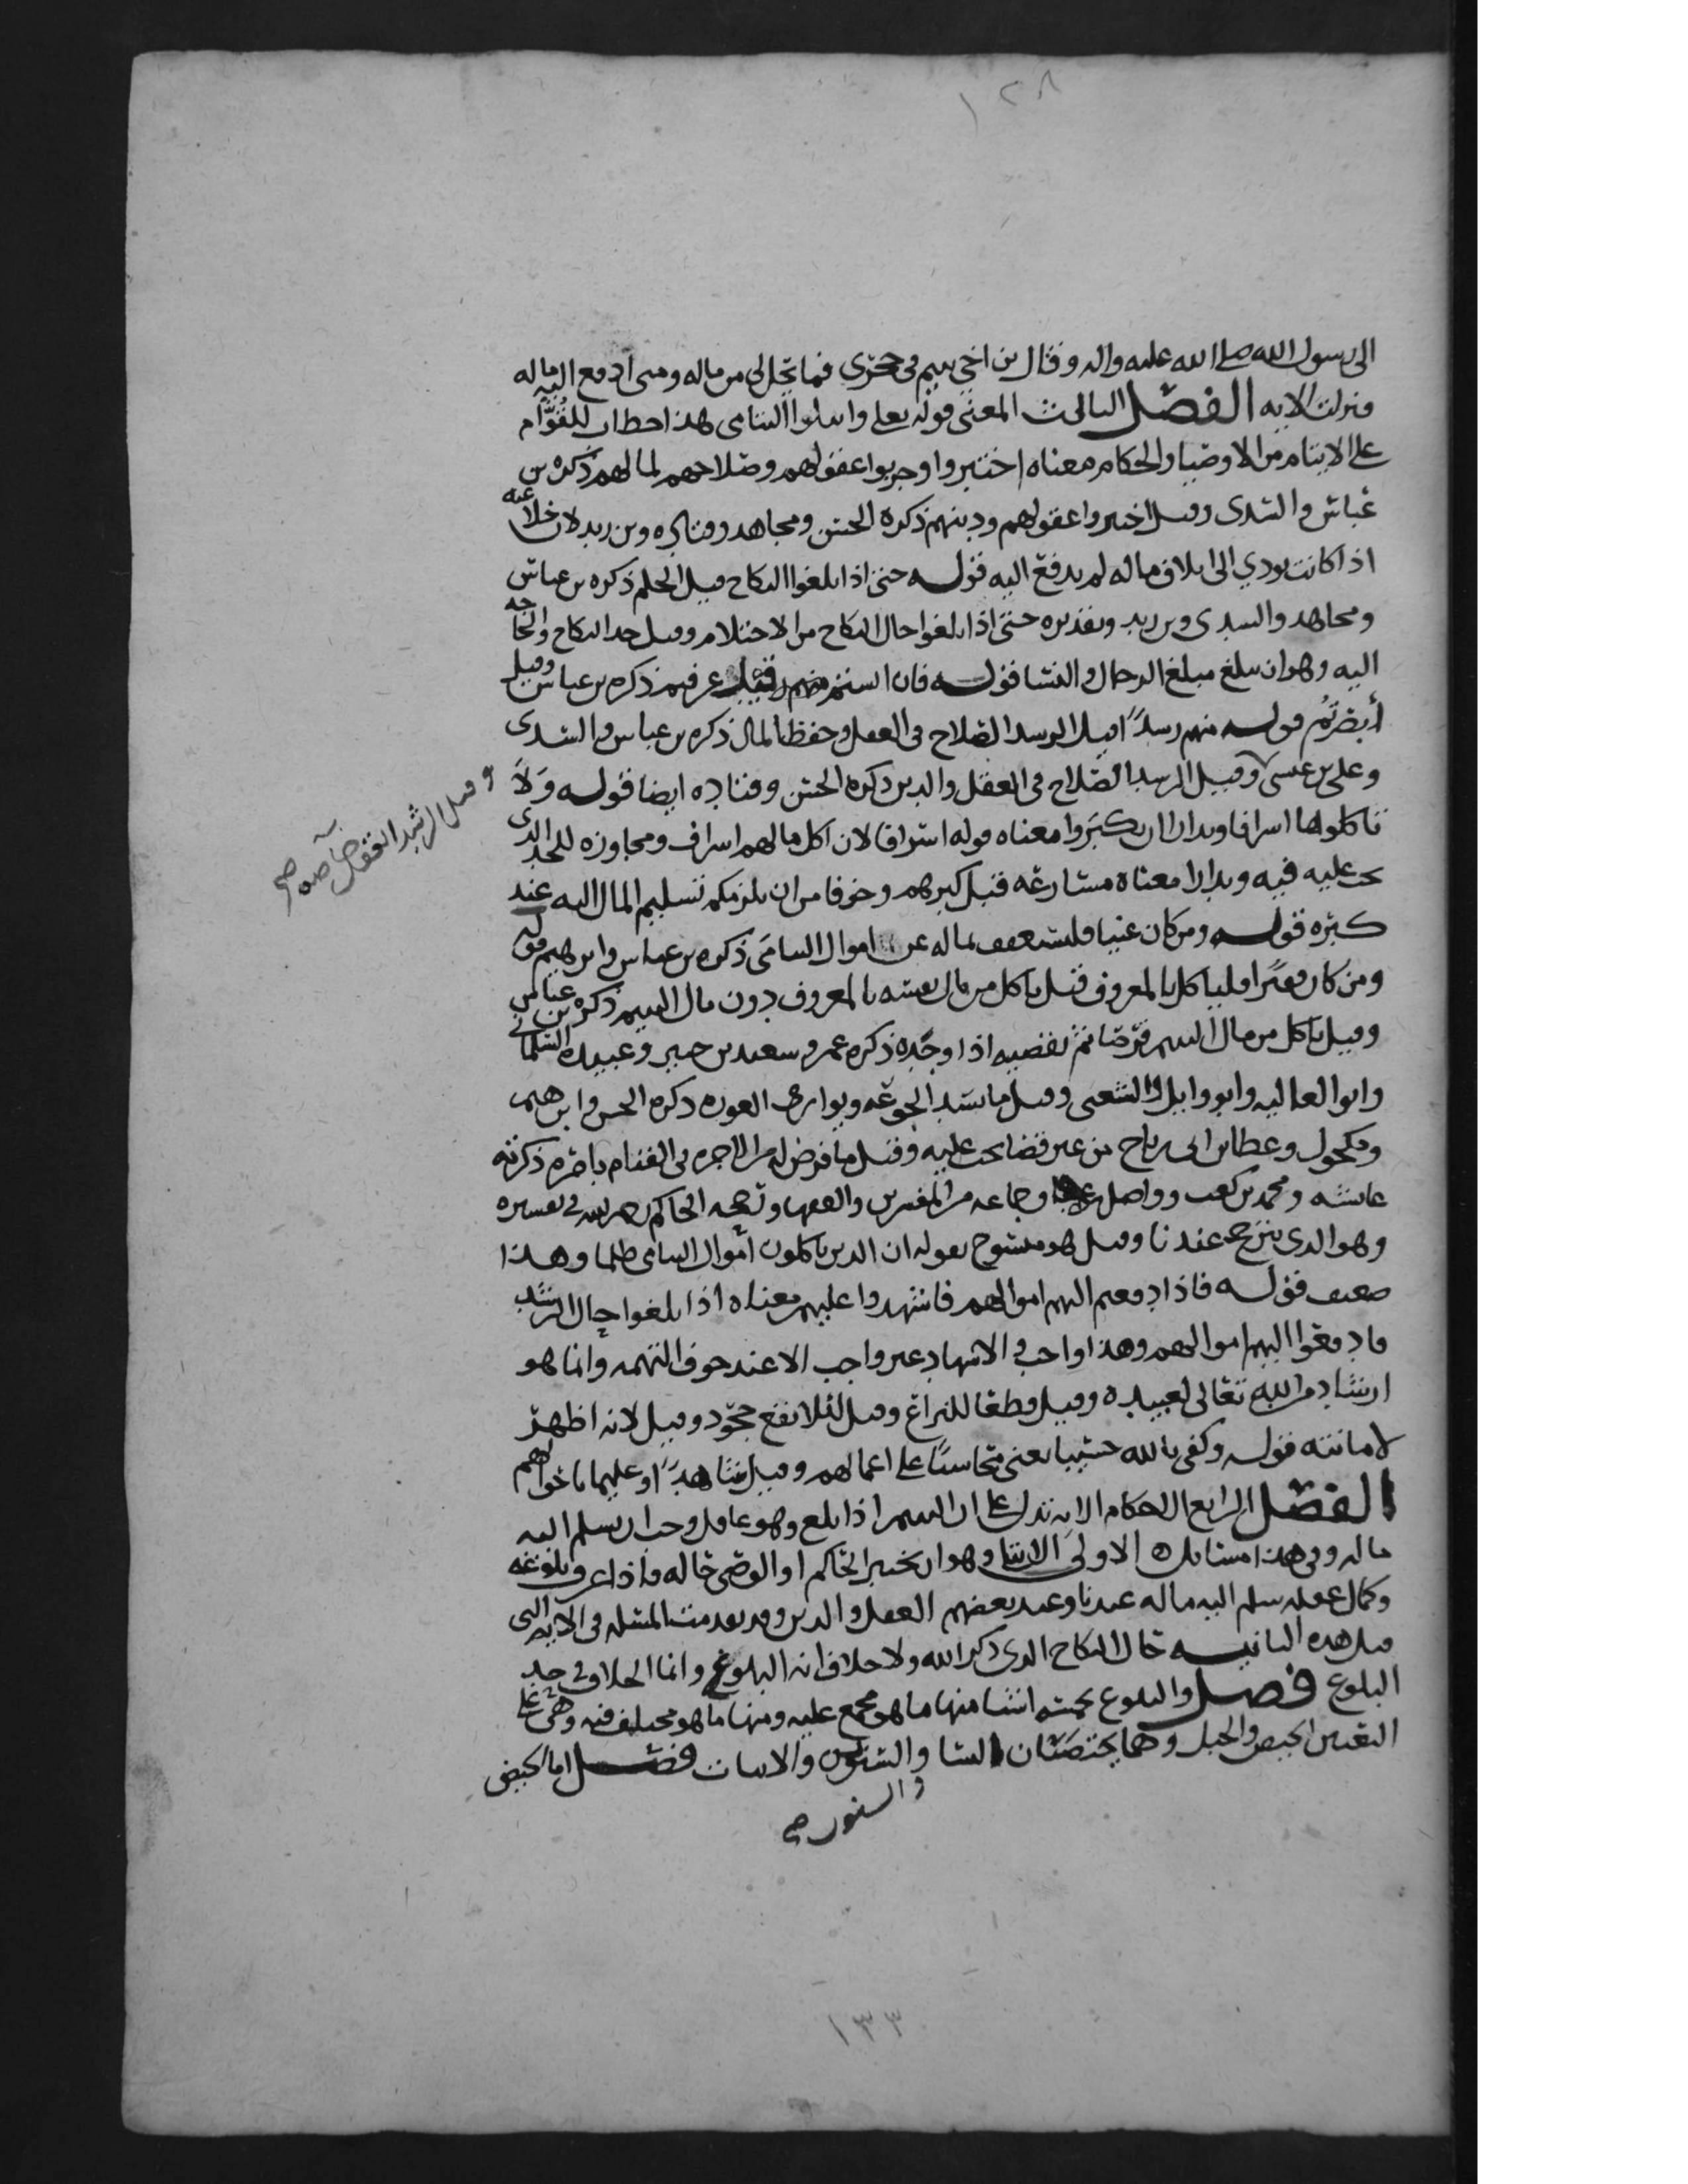 ١٢٨
الى رسول الله صلى الله عليه واله وقال بن اخي يتيم في حجري فما يحل لي من ماله ومتى ادفع اليه ماله
فنزلت الايه الفصل الثالث المعنى قوله تعلى وابتلوا اليتامى هذا خطاب للقوام
على الايتام من الاوصيا والحكام معناه اختبروا وجربوا عقولهم وصلاحهم لمالهم ذكره بن
عباس والسدي وقيل اختبروا عقولهم ودينهم ذكره الحسن ومجاهد وقتاده وبن زيد لان خلاعته
اذا كانت تودي الى اتلاف ماله لم يدفع اليه قوله حتى اذا بلغوا النكاح قيل الحلم ذكره بن عباس
ومجاهد والسدي وبن زيد وتقديره حتى اذا بلغوا حال النكاح من الاحتلام وقيل حد النكاح والحاجه
اليه وهو ان يبلغ مبلغ الرجال والنسا قوله فان انستم منهم قيل عرفتم ذكره بن عباس وقيل
أبصرتم قوله منهم رشدًا قيل الرشد الصلاح في العقل وحفظ المال ذكره بن عباس والسدي
وعلي بن عيسى وقيل الرشد الصلاح في العقل والدين ذكره الحسن وقتاده ايضا قوله ولا
وقيل الرشد العقل خاصه صح
تاكلوها اسرافا وبدارا ان يكبروا معناه قوله اسرافا لان اكل مالهم اسراف ومجاوزه للحد الذي
يجب عليه فيه وبدارا معناه مسارعه قبل كبرهم وخوفا من ان يلزمكم تسليم المال اليه عند
كبره قوله ومن كان غنيا فليستعفف بماله عن اموال اليتامى ذكره بن عباس وابرهيم قوله
ومن كان فقيرا فلياكل بالمعروف قيل ياكل من مال نفسه بالمعروف دون مال اليتيم ذكره بن عباس
وقيل ياكل من مال اليتيم قرضا ثم يقضيه اذا وجده ذكره عمر وسعيد بن جبير وعبيده السلماني
وابو العاليه وابو وايل والشعبي وقيل ما يسد الجوعه ويواري العوره ذكره الحسن وابرهيم
ومكحول وعطا بن ابي رباح من غير قضا يجب عليه وقيل ما فرض له من الاجره في القيام بامره ذكرته
عايشه ومحمد بن كعب وواصل بن عطا وجماعه من المفسرين والفقها وصححه الحاكم رحمه الله في تفسيره
وهو الذي يترجح عندنا وقيل هو منسوخ بقوله ان الذين ياكلون اموال اليتامى ظلما وهذا
ضعيف قوله فاذا دفعتم اليهم اموالهم فاشهدوا عليهم معناه اذا بلغوا حال الرشد
فادفعوا اليهم اموالهم وهذا واجب والاشهاد غير واجب الا عند خوف التهمه وانما هو
ارشاد من الله تعالى لعبيده وقيل قطعا للنزاع وقيل لئلا يقع جحود وقيل لانه اظهر
لامانته قوله وكفى بالله حسيبا يعني محاسبًا على اعمالهم وقيل شاهدًا وعليما باحوالهم
الفصل الرابع الاحكام الايه تدل على ان اليتيم اذا بلغ وهو عاقل وجب ان يسلم اليه
ماله وفي هذا مسائل ه الاولى الابتلا وهو ان يختبر الحاكم او الوصي حاله فاذا عرف بلوغه
وكمال عقله سلم اليه ماله عندنا وعند بعضهم العقل والدين وقد تقدمت المسئله في الايه التي
قبل هذه الثانيه حال النكاح الذي ذكر الله ولا خلاف انه البلوغ وانما الخلاف في حد
البلوغ فصل والبلوغ بخمسه اشيا منها ما هو مجمع عليه ومنها ما هو مختلف فيه وهي على
التعيين الحيض والحبل وهما يختصان النسا والسنون والانبات فصل اما الحيض
والسنون صح
١٣٣